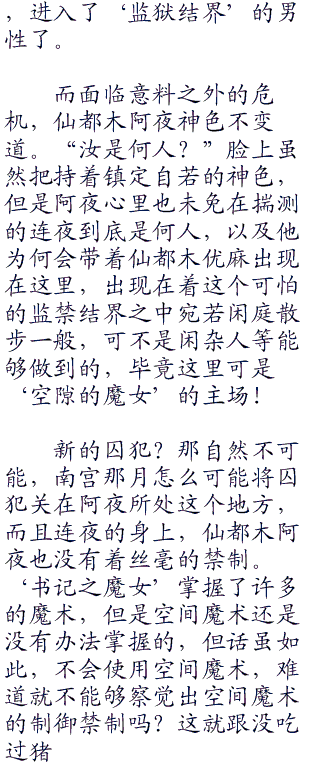 ，进入了‘监狱结界’的男
性了。
而面临意料之外的危
机，仙都木阿夜神色不变
道。“汝是何人？”脸上虽
然把持着镇定自若的神色，
但是阿夜心里也未免在揣测
的连夜到底是何人，以及他
为何会带着仙都木优麻出现
在这里，出现在着这个可怕
的监禁结界之中宛若闲庭散
步一般，可不是闲杂人等能
够做到的，毕竟这里可是
‘空隙的魔女’的主场！
新的囚犯？那自然不可
能，南宫那月怎么可能将囚
犯关在阿夜所处这个地方，
而且连夜的身上，仙都木阿
夜也没有着丝毫的禁制。
‘书记之魔女’掌握了许多
的魔术，但是空间魔术还是
没有办法掌握的，但话虽如
此，不会使用空间魔术，难
道就不能够察觉出空间魔术
的制御禁制吗？这就跟没吃
过猪